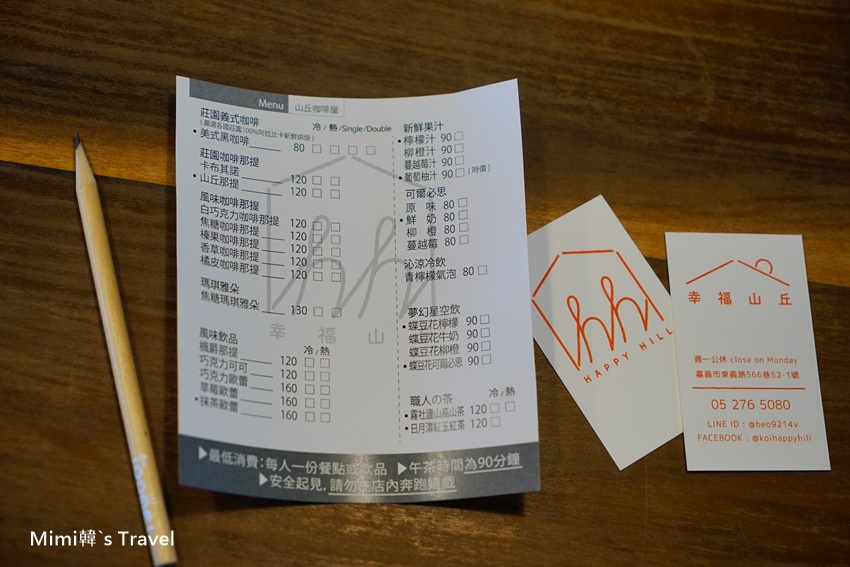 Menu 山丘咖啡屋
莊園義式咖啡 冷 / 熱 /Single/Double
(嚴選各國莊園100%阿拉比卡新鮮烘焙)
•美式黑咖啡 80 □ □ □ □
莊園咖啡那提
卡布其諾 120 □ □
•山丘那提 120 □ □
風味咖啡那提
白巧克力咖啡那提 120 □ □
焦糖咖啡那提 120 □ □
榛果咖啡那提 120 □ □
香草咖啡那提 120 □ □
橘皮咖啡那提 120 □ □
瑪琪雅朵
焦糖瑪琪雅朵 130 □ □
風味飲品 冷 / 熱
楓爵那提 120 □ □
巧克力可可 120 □ □
巧克力歐蕾 160 □ □
草莓歐蕾 160 □ □
•抹茶歐蕾 160 □ □
新鮮果汁
•檸檬汁 90 □
柳橙汁 90 □
蔓越莓汁 90 □
•葡萄柚汁 90 □ (時價)
可爾必思
原 味 80 □
•鮮 奶 80 □
柳 橙 80 □
蔓越莓 80 □
沁涼冷飲
青檸檬氣泡 80 □
夢幻星空飲
•蝶豆花檸檬 90 □
蝶豆花牛奶 90 □
蝶豆花柳橙 90 □
•蝶豆花可爾必思 90 □
職人の茶 冷 / 熱
•霧社廬山高山茶 120 □ □
•日月潭紅玉紅茶 120 □
幸 福 山
▶最低消費：每人一份餐點或飲品 ▶午茶時間為90分鐘
▶安全起見, 請勿在店內奔跑嬉戲
HAPPY HILL
幸 福 山 丘
週一公休 close on Monday
嘉義市東義路566巷52-1號
05 276 5080
LINE ID : @beo9214v
FACEBOOK : @koihappyhill
Mimi韓`s Travel